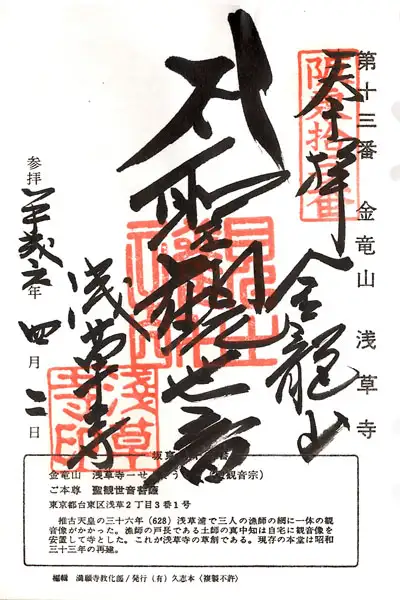 第十三番 金竜山 浅草寺
奉拝
金龍山
聖観世音
浅草寺
参拝 平成弐六年 四月二日
金竜山 浅草寺—せ
観音宗)
ご本尊 聖観世音菩薩
東京都台東区浅草2丁目3番1号
推古天皇の三十六年(628)浅草浦で三人の漁師の網に一体の観
音像がかかった。漁師の戸長である土師の真中知は自宅に観音像を
安置して寺とした。これが浅草寺の草創である。現存の本堂は昭和
三十三年の再建。
編輯 満願寺教化部/発行(有)久志本〈複製不許〉